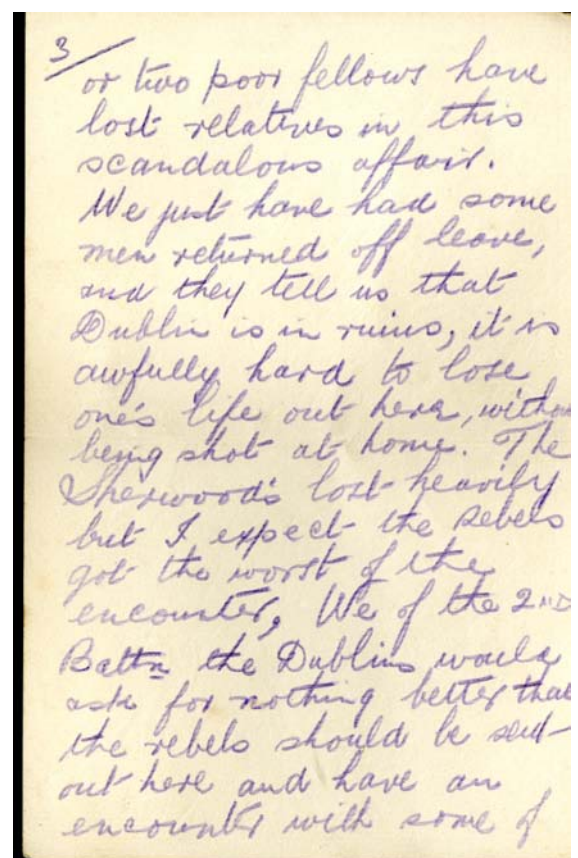 3/
or two poor fellows have
lost relatives in this
scandalous affair.
We just have had some
men returned off leave,
and they tell us that
Dublin is in ruins, it is
awfully hard to lose
one's life out here, withou
being shot at home. The
Sherwood's lost heavily
but I expect the Rebels
got the worst of the
encounter, We of the 2ND
Battn the Dublins would
ask for nothing better that
the rebels should be sent
out here and have an
encounter with some of